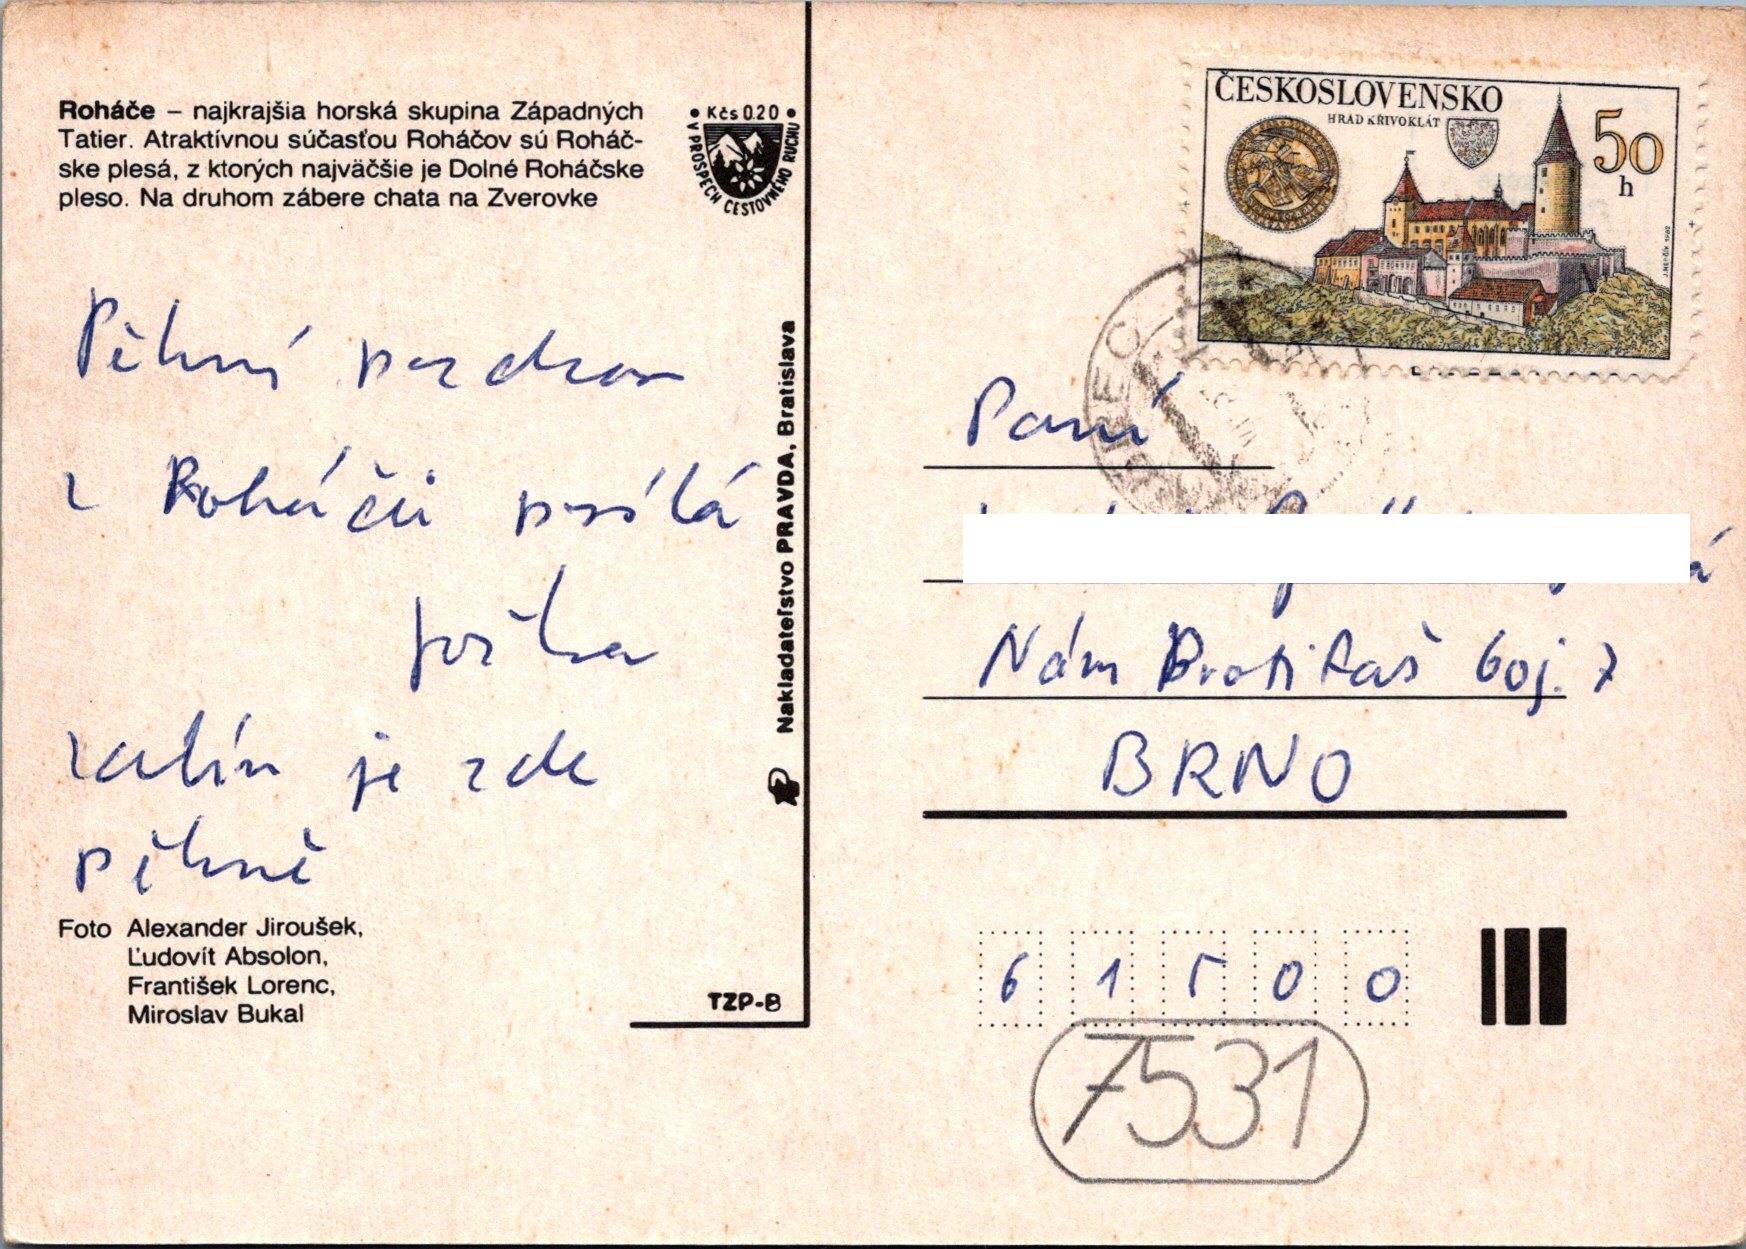 Roháče – najkrajšia horská skupina Západných
Tatier. Atraktívnou súčasťou Roháčov sú Roháč-
ske plesá, z ktorých najväčšie je Dolné Roháčske
pleso. Na druhom zábere chata na Zverovke
• Kčs 0.20 •
V PROSPECH CESTOVNÉHO RUCHU
ČESKOSLOVENSKO
HRAD KŘIVOKLÁT
50
h
Pěkný pozdrav
z Roháčů posílá
zatím je zde
pěkně
Foto Alexander Jiroušek,
Ľudovít Absolon,
František Lorenc,
Miroslav Bukal
Nakladateľstvo PRAVDA, Bratislava
TZP-B
Paní
Nám
BRNO
61500
7531